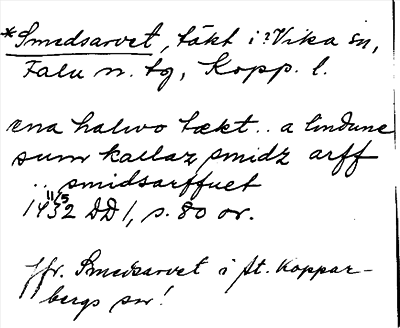 *Smedsarvet, täkt i ?Vika sn,
Falu n. tg, Kopp. l.
ena halwo tækt.. a lindune
sum kallaz smidz arff
.. smidsarffuet
11/5
1432 DD 1, s. 80 or.
Jfr. Smedsarvet i St. Koppar-
bergs sn!